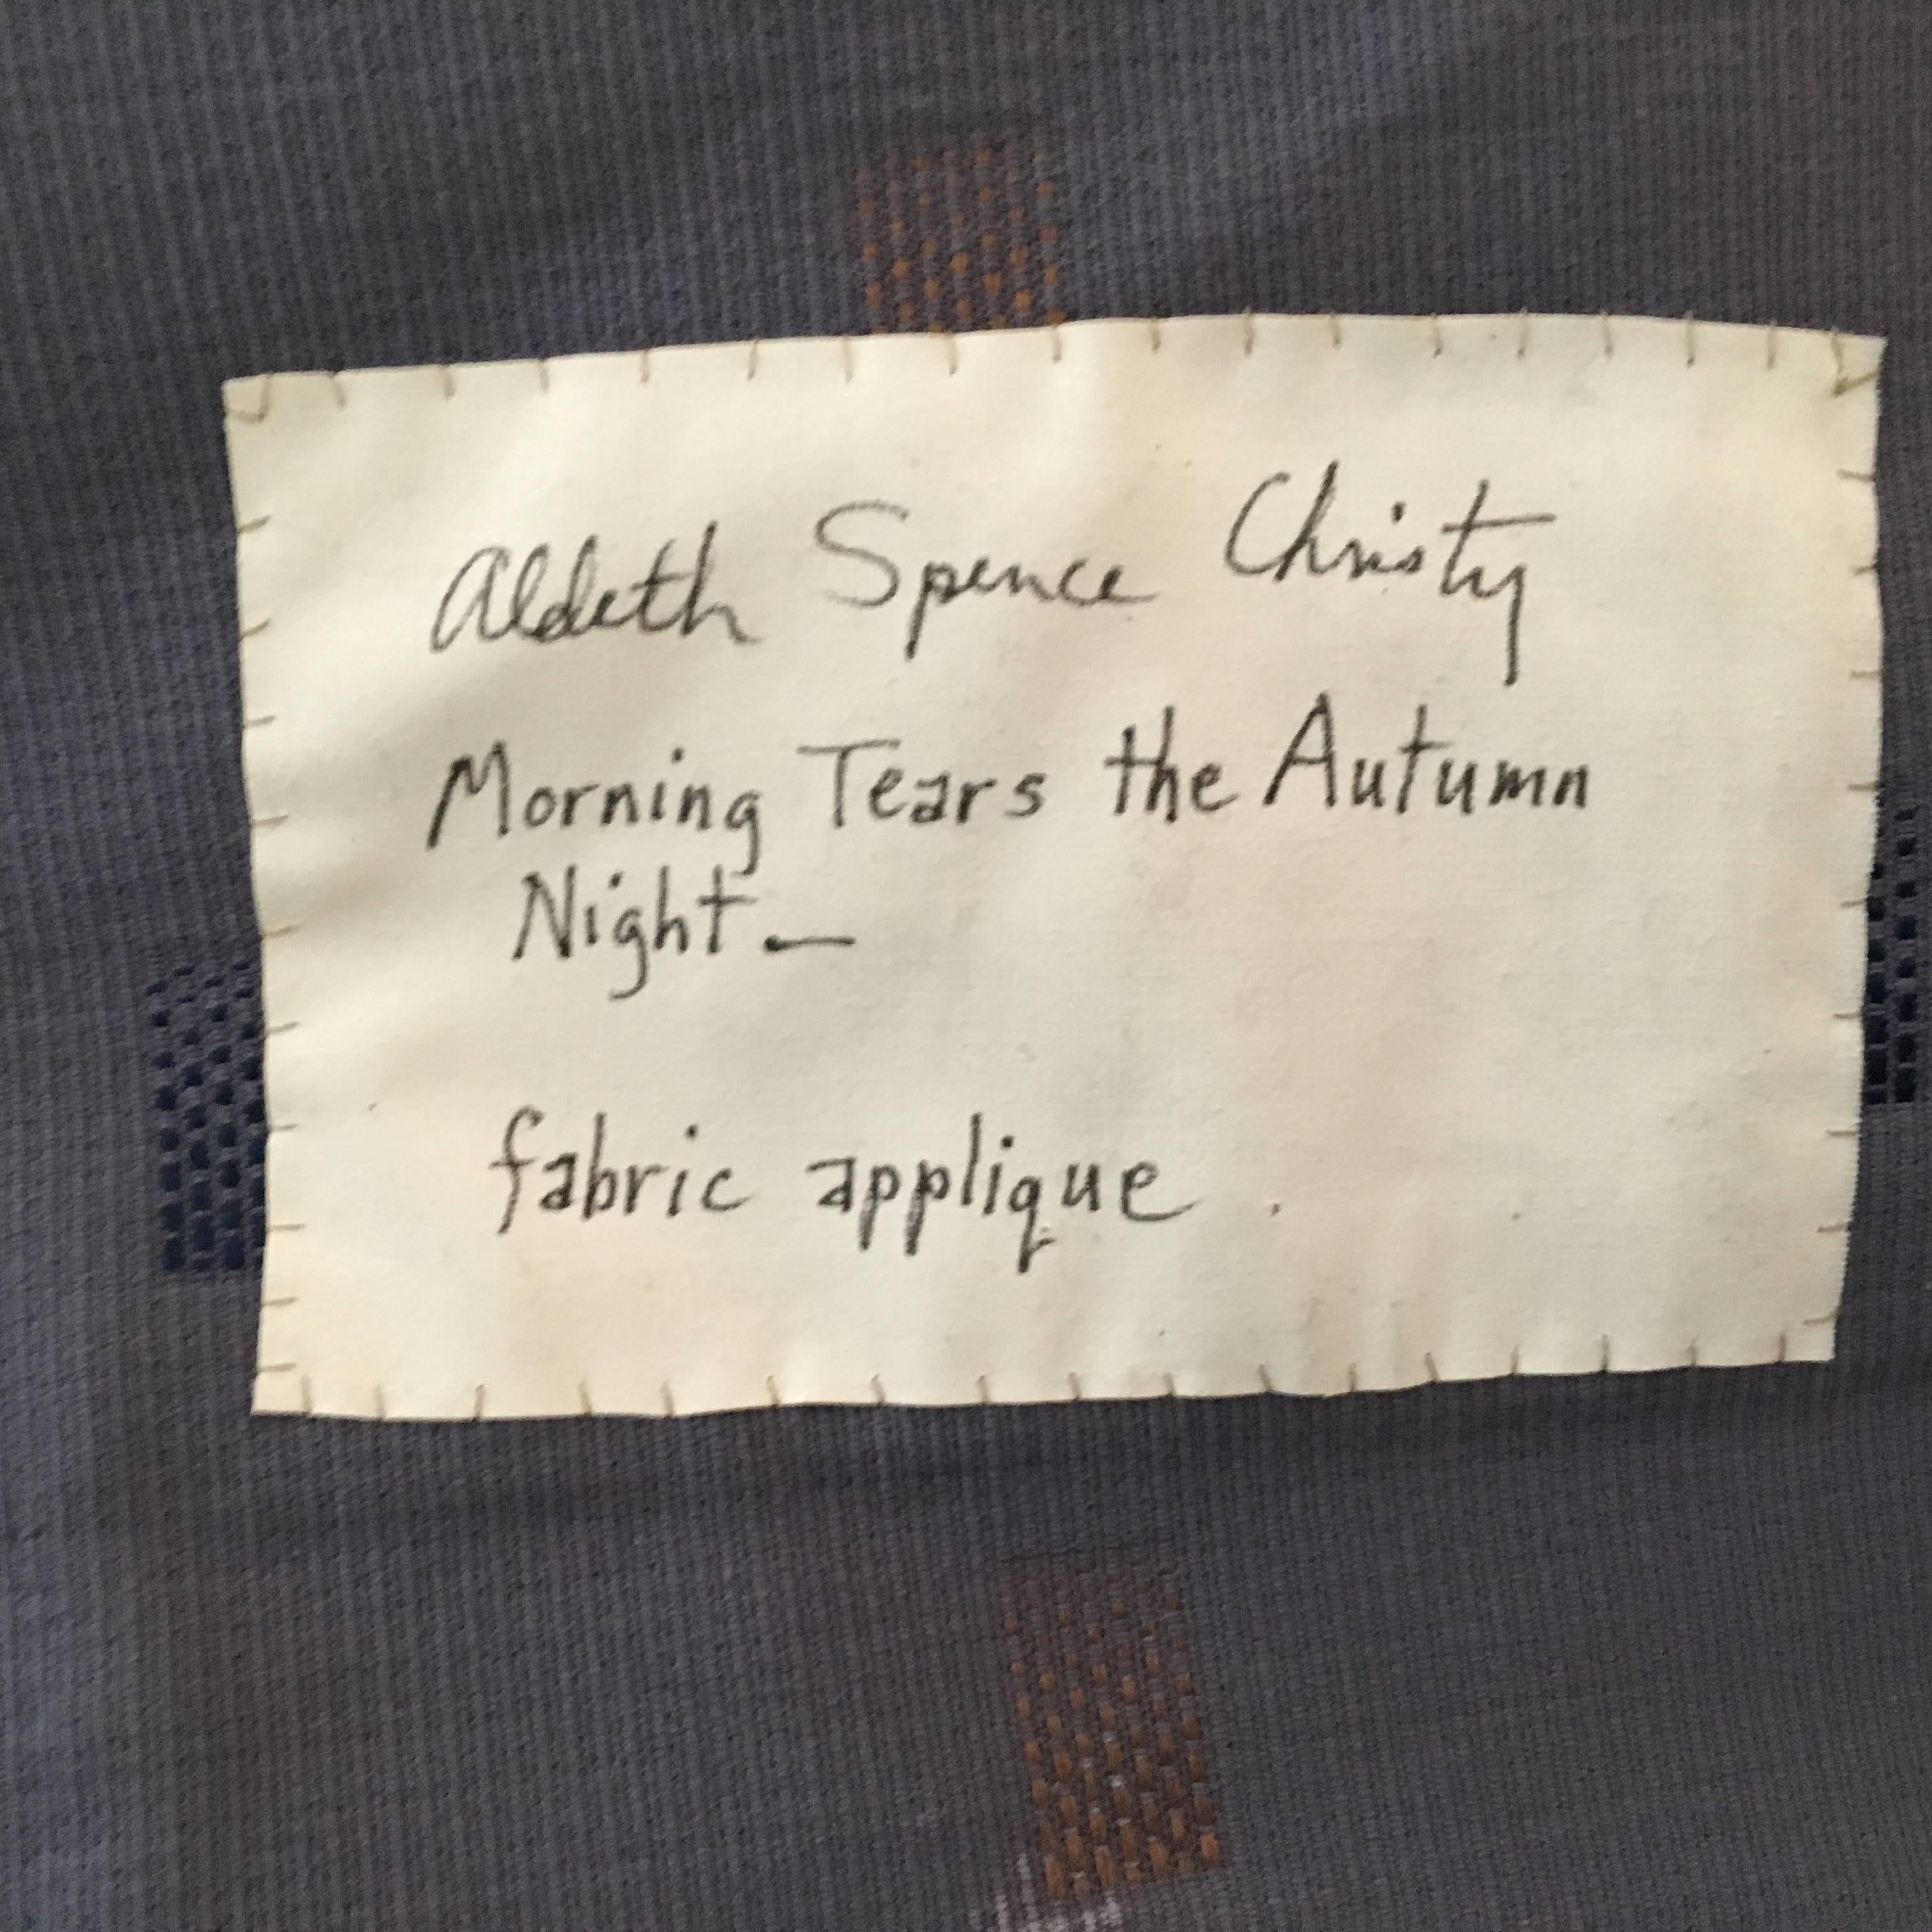 Aldeth Spence Christy
Morning Tears the Autumn
Night —
fabric applique